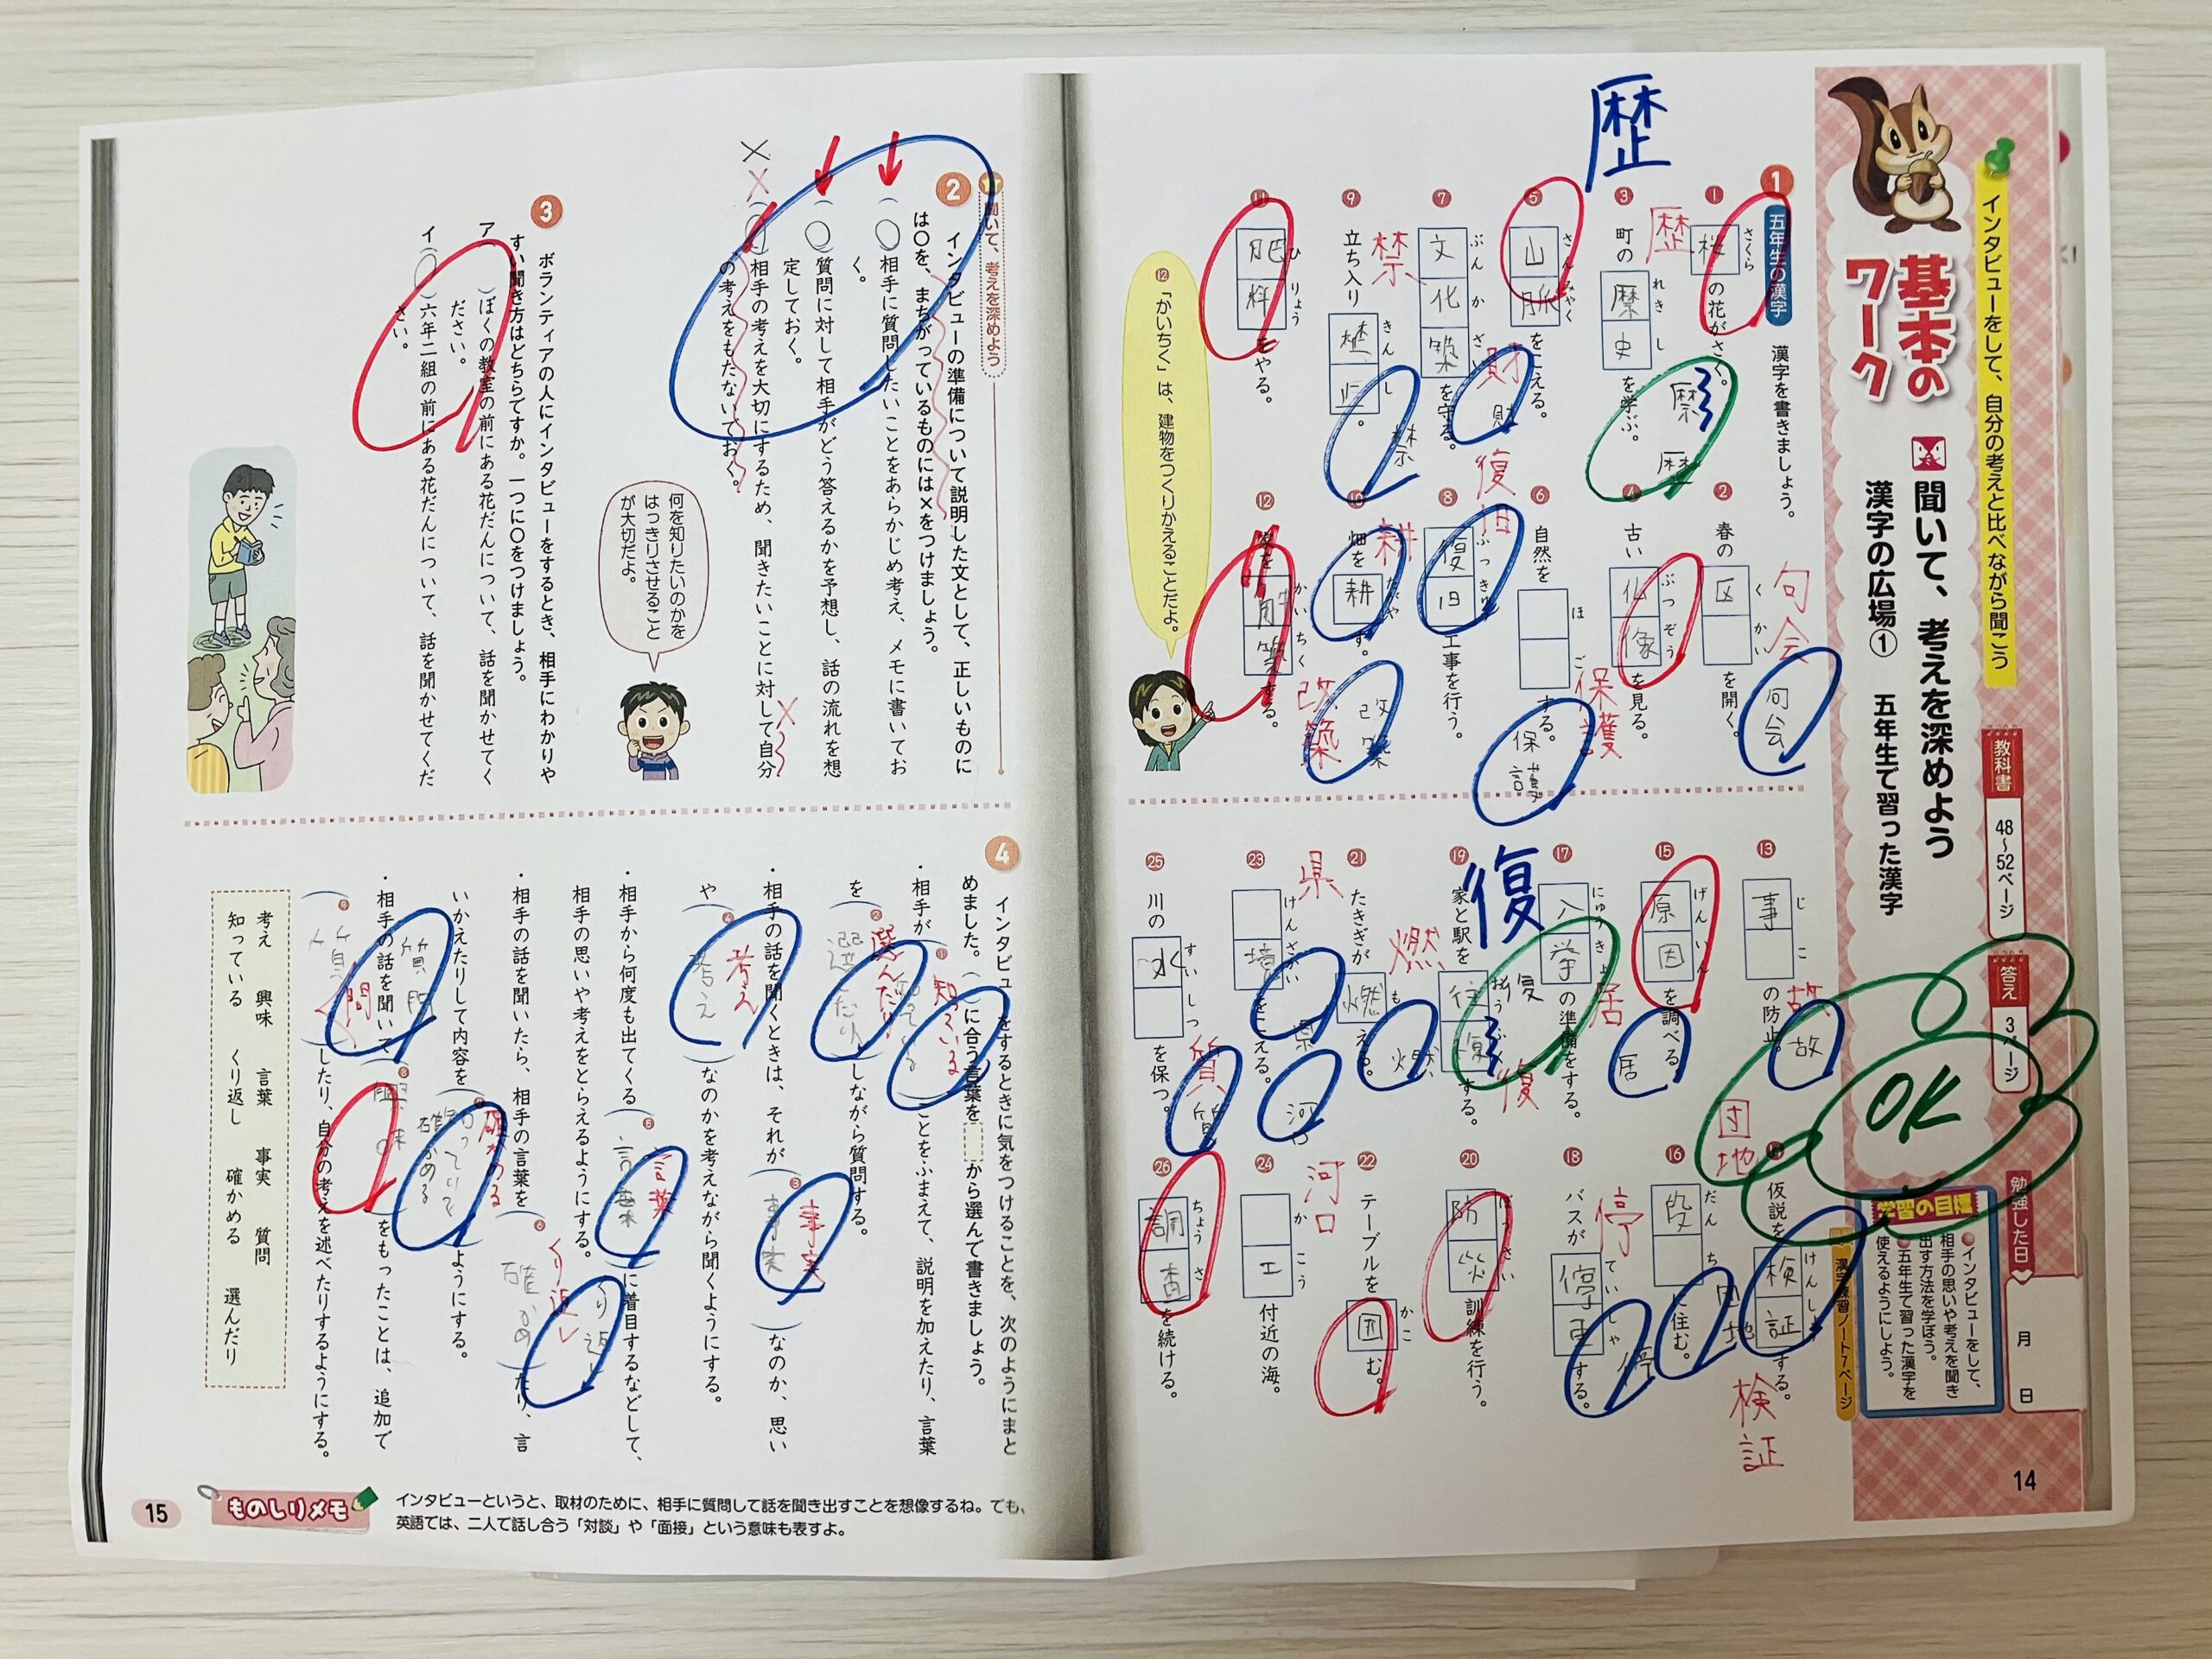 インタビューをして、自分の考えと比べながら聞こう
基本の
ワーク
聞いて、考えを深めよう
漢字の広場① 五年生で習った漢字
教科書 48〜52ページ
答え 3ページ
勉強した日 月 日
OK
学習の目標
●インタビューをして、
相手の思いや考えを聞き
出す方法を学ぼう。
●五年生で習った漢字を
使えるようにしよう。
漢字練習ノート7ページ
14
1 五年生の漢字 漢字を書きましょう。
歴
① 桜 さくら の花がさく。
② 春の 区 くかい を開く。
句会
句会
③ 町の 暦史 れきし を学ぶ。
歴
歴
④ 古い 仏像 ぶつぞう を見る。
⑤ 山脈 さんみゃく をこえる。
⑥ 自然を ほご する。
保護
保護
⑦ 文化築 ぶんかざい を守る。
財
財
⑧ 復旧 ふっきゅう 工事を行う。
復旧
⑨ 立ち入り きんし 。
禁
禁
⑩ 畑を 耕 たがや す。
耕
⑪ 肥料 ひりょう をやる。
⑫ 家を かいちく する。
改築
改築
⑫「かいちく」は、建物をつくりかえることだよ。
⑬ 事 じこ の防止。
故
故
⑭ 仮説を 検証 けんしょう する。
検証
⑮ 原因 げんいん を調べる。
⑯ 段 だんち に住む。
団地
団地
⑰ 入挙 にゅうきょ の準備をする。
居
居
⑱ バスが 停車 ていしゃ する。
停
停
⑲ 家と駅を 往復 おうふく する。
復
復
復
⑳ 防災 ぼうさい 訓練を行う。
㉑ たきぎが 燃 も える。
燃
燃
㉒ テーブルを 囲 かこ む。
㉓ 境 けんざかい をこえる。
県
県
㉔ かこう 付近の海。
河口
河口
㉕ 川の 水 すいしつ を保つ。
質
質
㉖ 調査 ちょうさ を続ける。
聞いて、考えを深めよう
2 インタビューの準備について説明した文として、正しいものに
は○を、まちがっているものには×をつけましょう。
(○)相手に質問したいことをあらかじめ考え、メモに書いてお
く。
(○)質問に対して相手がどう答えるかを予想し、話の流れを想
定しておく。
×
×
(○)相手の考えを大切にするため、聞きたいことに対して自分
の考えをもたないでおく。
×
何を知りたいのかを
はっきりさせること
が大切だよ。
3 ボランティアの人にインタビューをするとき、相手にわかりや
すい聞き方はどちらですか。一つに○をつけましょう。
ア( )ぼくの教室の前にある花だんについて、話を聞かせてく
ださい。
イ(○)六年二組の前にある花だんについて、話を聞かせてくだ
さい。
4 インタビューをするときに気をつけることを、次のようにまと
めました。( )に合う言葉を から選んで書きましょう。
・相手が(① 知っている)ことをふまえて、説明を加えたり、言葉
を(② 選んだり)しながら質問する。
・相手の話を聞くときは、それが(③ 事実)なのか、思い
や(④ 考え)なのかを考えながら聞くようにする。
・相手から何度も出てくる(⑤ 言葉)に着目するなどして、
相手の思いや考えをとらえるようにする。
・相手の話を聞いたら、相手の言葉を(⑥ くり返し)たり、言
いかえたりして内容を(⑦ 確かめる)ようにする。
・相手の話を聞いて(⑧ 興味)をもったことは、追加で
(⑨ 質問)したり、自分の考えを述べたりするようにする。
考え 興味 言葉 事実 質問
知っている くり返し 確かめる 選んだり
15
ものしりメモ
インタビューというと、取材のために、相手に質問して話を聞き出すことを想像するね。でも、
英語では、二人で話し合う「対談」や「面接」という意味も表すよ。